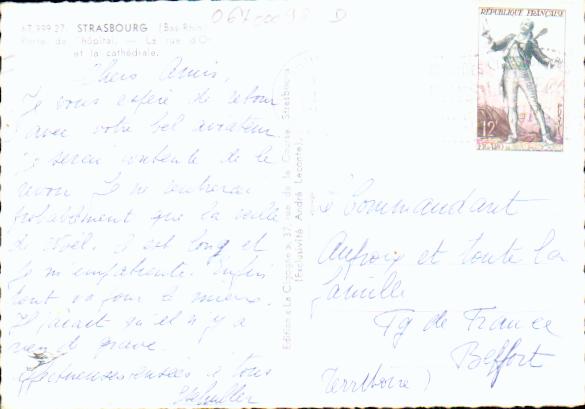 67.999.27. STRASBOURG (Bas-Rhin)
Porte de l'hôpital. — La rue d'Or
et la cathédrale.
D
Chers Amis,
Je vous espère de retour
avec votre bel aviateur
Je serai contente de le
revoir. Je ne rentrerai
probablement que la veille
de Noël. C'est long et
je m'impatiente. Enfin
tout va pour le mieux.
Il paraît qu'il n'y a
rien de grave.
à tous
Editions La Cigogne, 37, rue de la Course, Strasbourg
(Exclusivité André Leconte).
RÉPUBLIQUE FRANÇAISE
12
FIGARO
POSTES
Commandant
et toute la
famille
Fg de France
Belfort
Territoire)